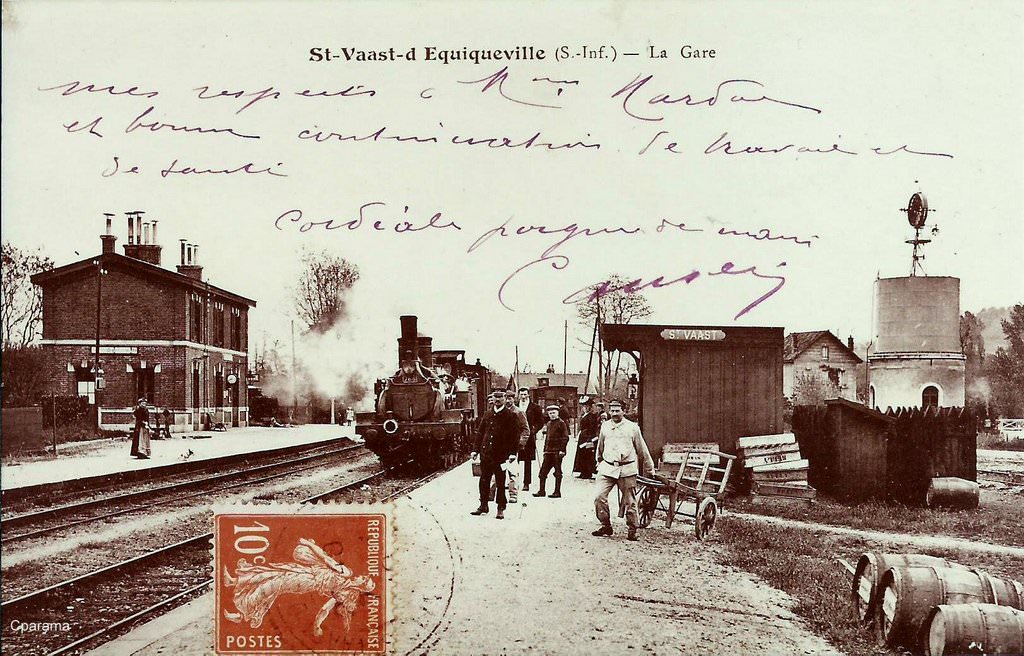 St-Vaast-d Equiqueville (S.-Inf.) — La Gare
mes respects à Mme Mardon
et bonne continuation de travail et
de santé
Cordiale poignée de main
ST VAAST
10c
REPUBLIQUE FRANÇAISE
POSTES
Cparama